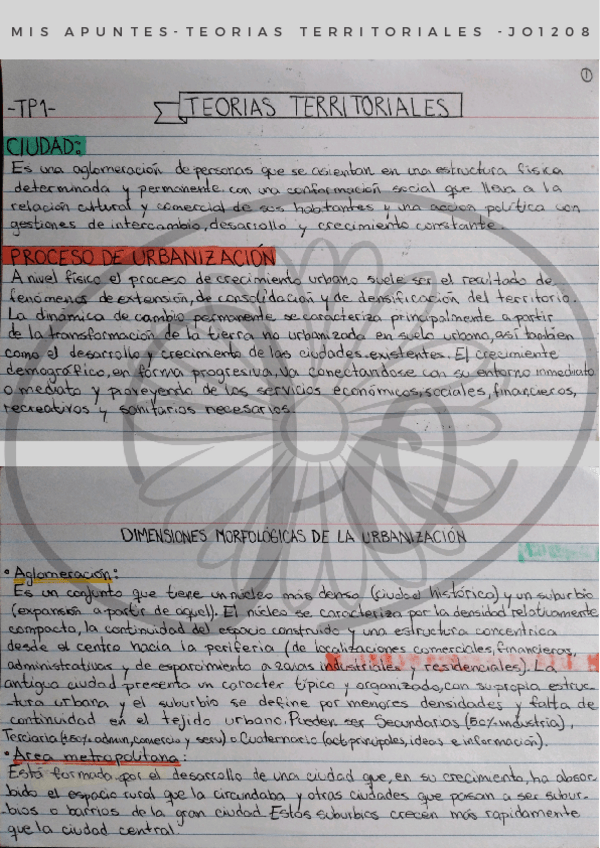 MIS APUNTES-TEORIAS TERRITORIALES -JO1208
1
-TP1-
TEORIAS TERRITORIALES
CIUDAD:
Es una aglomeración de personas que se asientan en una estructura física
determinada y permanente con una conformación social que lleva a la
relación cultural y comercial de sus habitantes y una acción política con
gestiones de intercambio, desarrollo y crecimiento constante.
PROCESO DE URBANIZACIÓN
A nivel físico el proceso de crecimiento urbano suele ser el resultado de
fenómenos de extensión, de consolidación y de densificación del territorio.
La dinámica de cambio permanente se caracteriza principalmente a partir
de la transformación de la tierra no urbanizada en suelo urbano, así también
como el desarrollo y crecimiento de las ciudades existentes. El crecimiente
demográfico, en forma progresiva, va conectandose con su entorno inmediato
o mediato y proveyendo de los servicios económicos, sociales, financieros,
recreativos y sanitarios necesarios.
DIMENSIONES MORFOLÓGICAS DE LA URBANIZACIÓN
• Aglomeración:
Es un conjunto que tiene un núcleo más denso (ciudad histórica) y un suburbio
(expansión a partir de aquel). El núcleo se caracteriza por la densidad relativamente
compacta, la continuidad del espacio construido y una estructura concentrica
desde el centro hacia la periferia (de localizaciones comerciales, financieras,
administrativas y de esparcimiento a zonas industriales y residenciales). La
antigua ciudad presenta un caracter típico y organizado, con su propia estruc-
tura urbana y el suburbio se define por menores densidades y falta de
continuidad en el tejido urbano. Pueden ser Secundarias (50% industria),
Terciaria (+50% admin, comercio y serv) o Cuaternario (act principales, ideas e información).
• Area metropolitana:
Está formado por el desarrollo de una ciudad que, en su crecimiento, ha absor-
bido el espacio rural que la circundaba y otras ciudades que pasan a ser subur-
bios o barrios de la gran ciudad. Estos suburbios crecen más rapidamente
que la ciudad central.